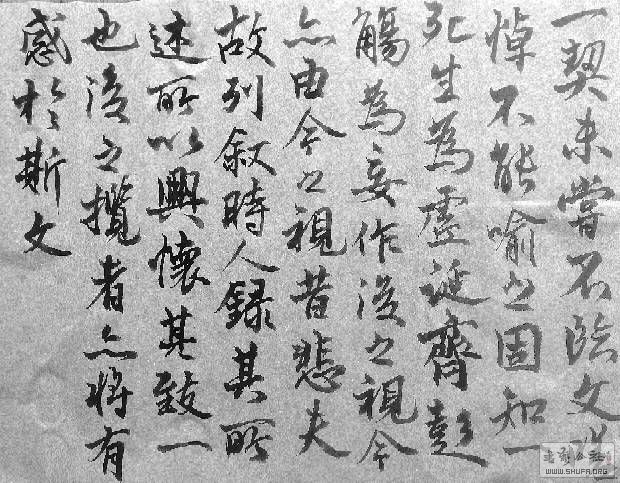 一契未嘗不臨文
悼不能喻之固知一
死生為虛誕齊彭
觴為妄作後之視今
亦由今之視昔悲夫
故列叙時人録其所
述所以興懷其致一
也後之攬者亦將有
感於斯文
WWW.SHUFA.ORG